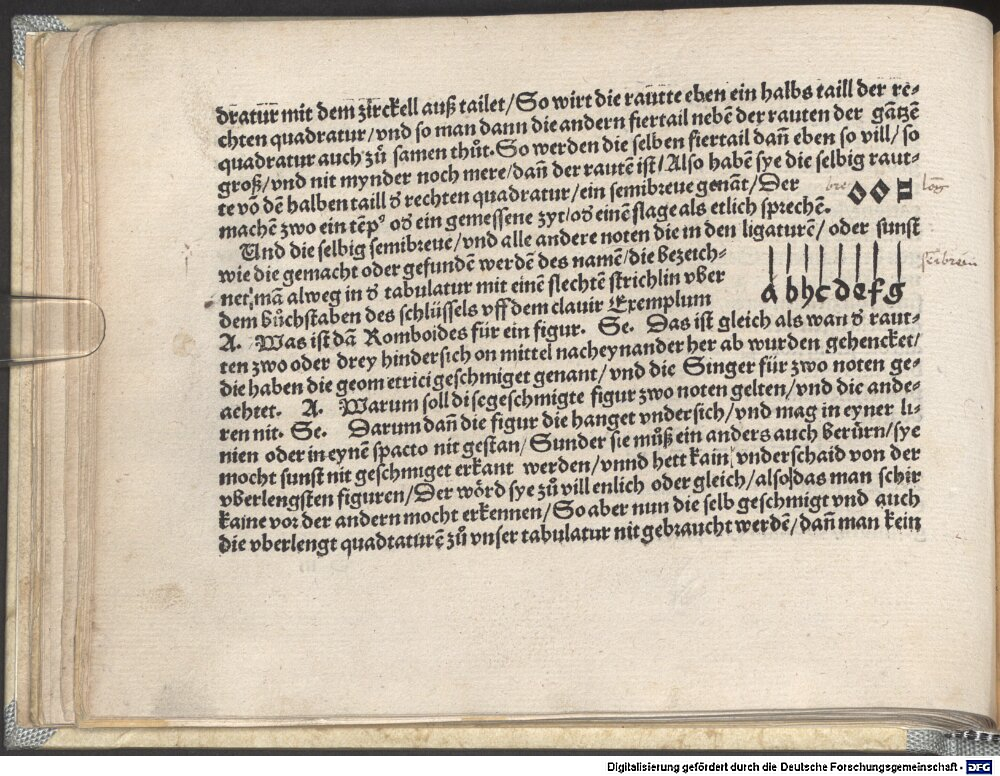 dratur̃ mit dem zirckell auß tailet/So wirt die rautte eben ein halbs taill der re-
chten quadratur/vnd so man dann die andern fiertail nebẽ der rauten der gãtzẽ
quadratur auch zů samen thůt. So werden die selben fiertail dañ eben so vill/so
groß/vnd nit mynder noch mere/dañ der rautẽ ist/Also habẽ sye die selbig raut-
te võ dẽ halben taill ď rechten quadratur/ein semibreue genãt/Der
machẽ zwo ein tẽpꝰ oď ein gemessene zyt/oď einẽ slage als etlich sprechẽ.
Und die selbig semibreuẽ/vnd alle andere noten die in den ligaturẽ/oder sunst
wie die gemacht oder gefundẽ werdẽ des namẽ/die bezeich-
net mã alweg in ď tabulatur mit einẽ slechtẽ strichlin vber
dem bůchstaben des schlüssels vff dem clauir Exemplum
a b h c d e f g
A. Was ist dã Romboides für ein figur. Se. Das ist gleich als wan ď raut-
ten zwo oder drey hindersich on mittel nacheynander her ab wurden gehencket/
die haben die geometrici geschmiget genant/vnd die Singer für zwo noten ge-
achtet. A. Warum soll di se geschmigte figur zwo noten gelten/vnd die ande-
ren nit. Se. Darum dañ die figur die hanget vndersich/vnd mag in eyner li-
nien oder in eynẽ spacto nit gestan/Sunder sie můß ein anders auch berürn/sye
mocht sunst nit geschmiget erkant werden/vnnd hett kain vnderschaid von der
vberlengsten figuren/Der wörd sye zů vill enlich oder gleich/also das man schir
kaine vor der andern mocht erkennen/So aber nun die selb geschmigt vnd auch
die vberlengt quadtaturẽ zů vnser tabulatur nit gebraucht werdẽ/dañ man kein
Digitalisierung gefördert durch die Deutsche Forschungsgemeinschaft - DFG